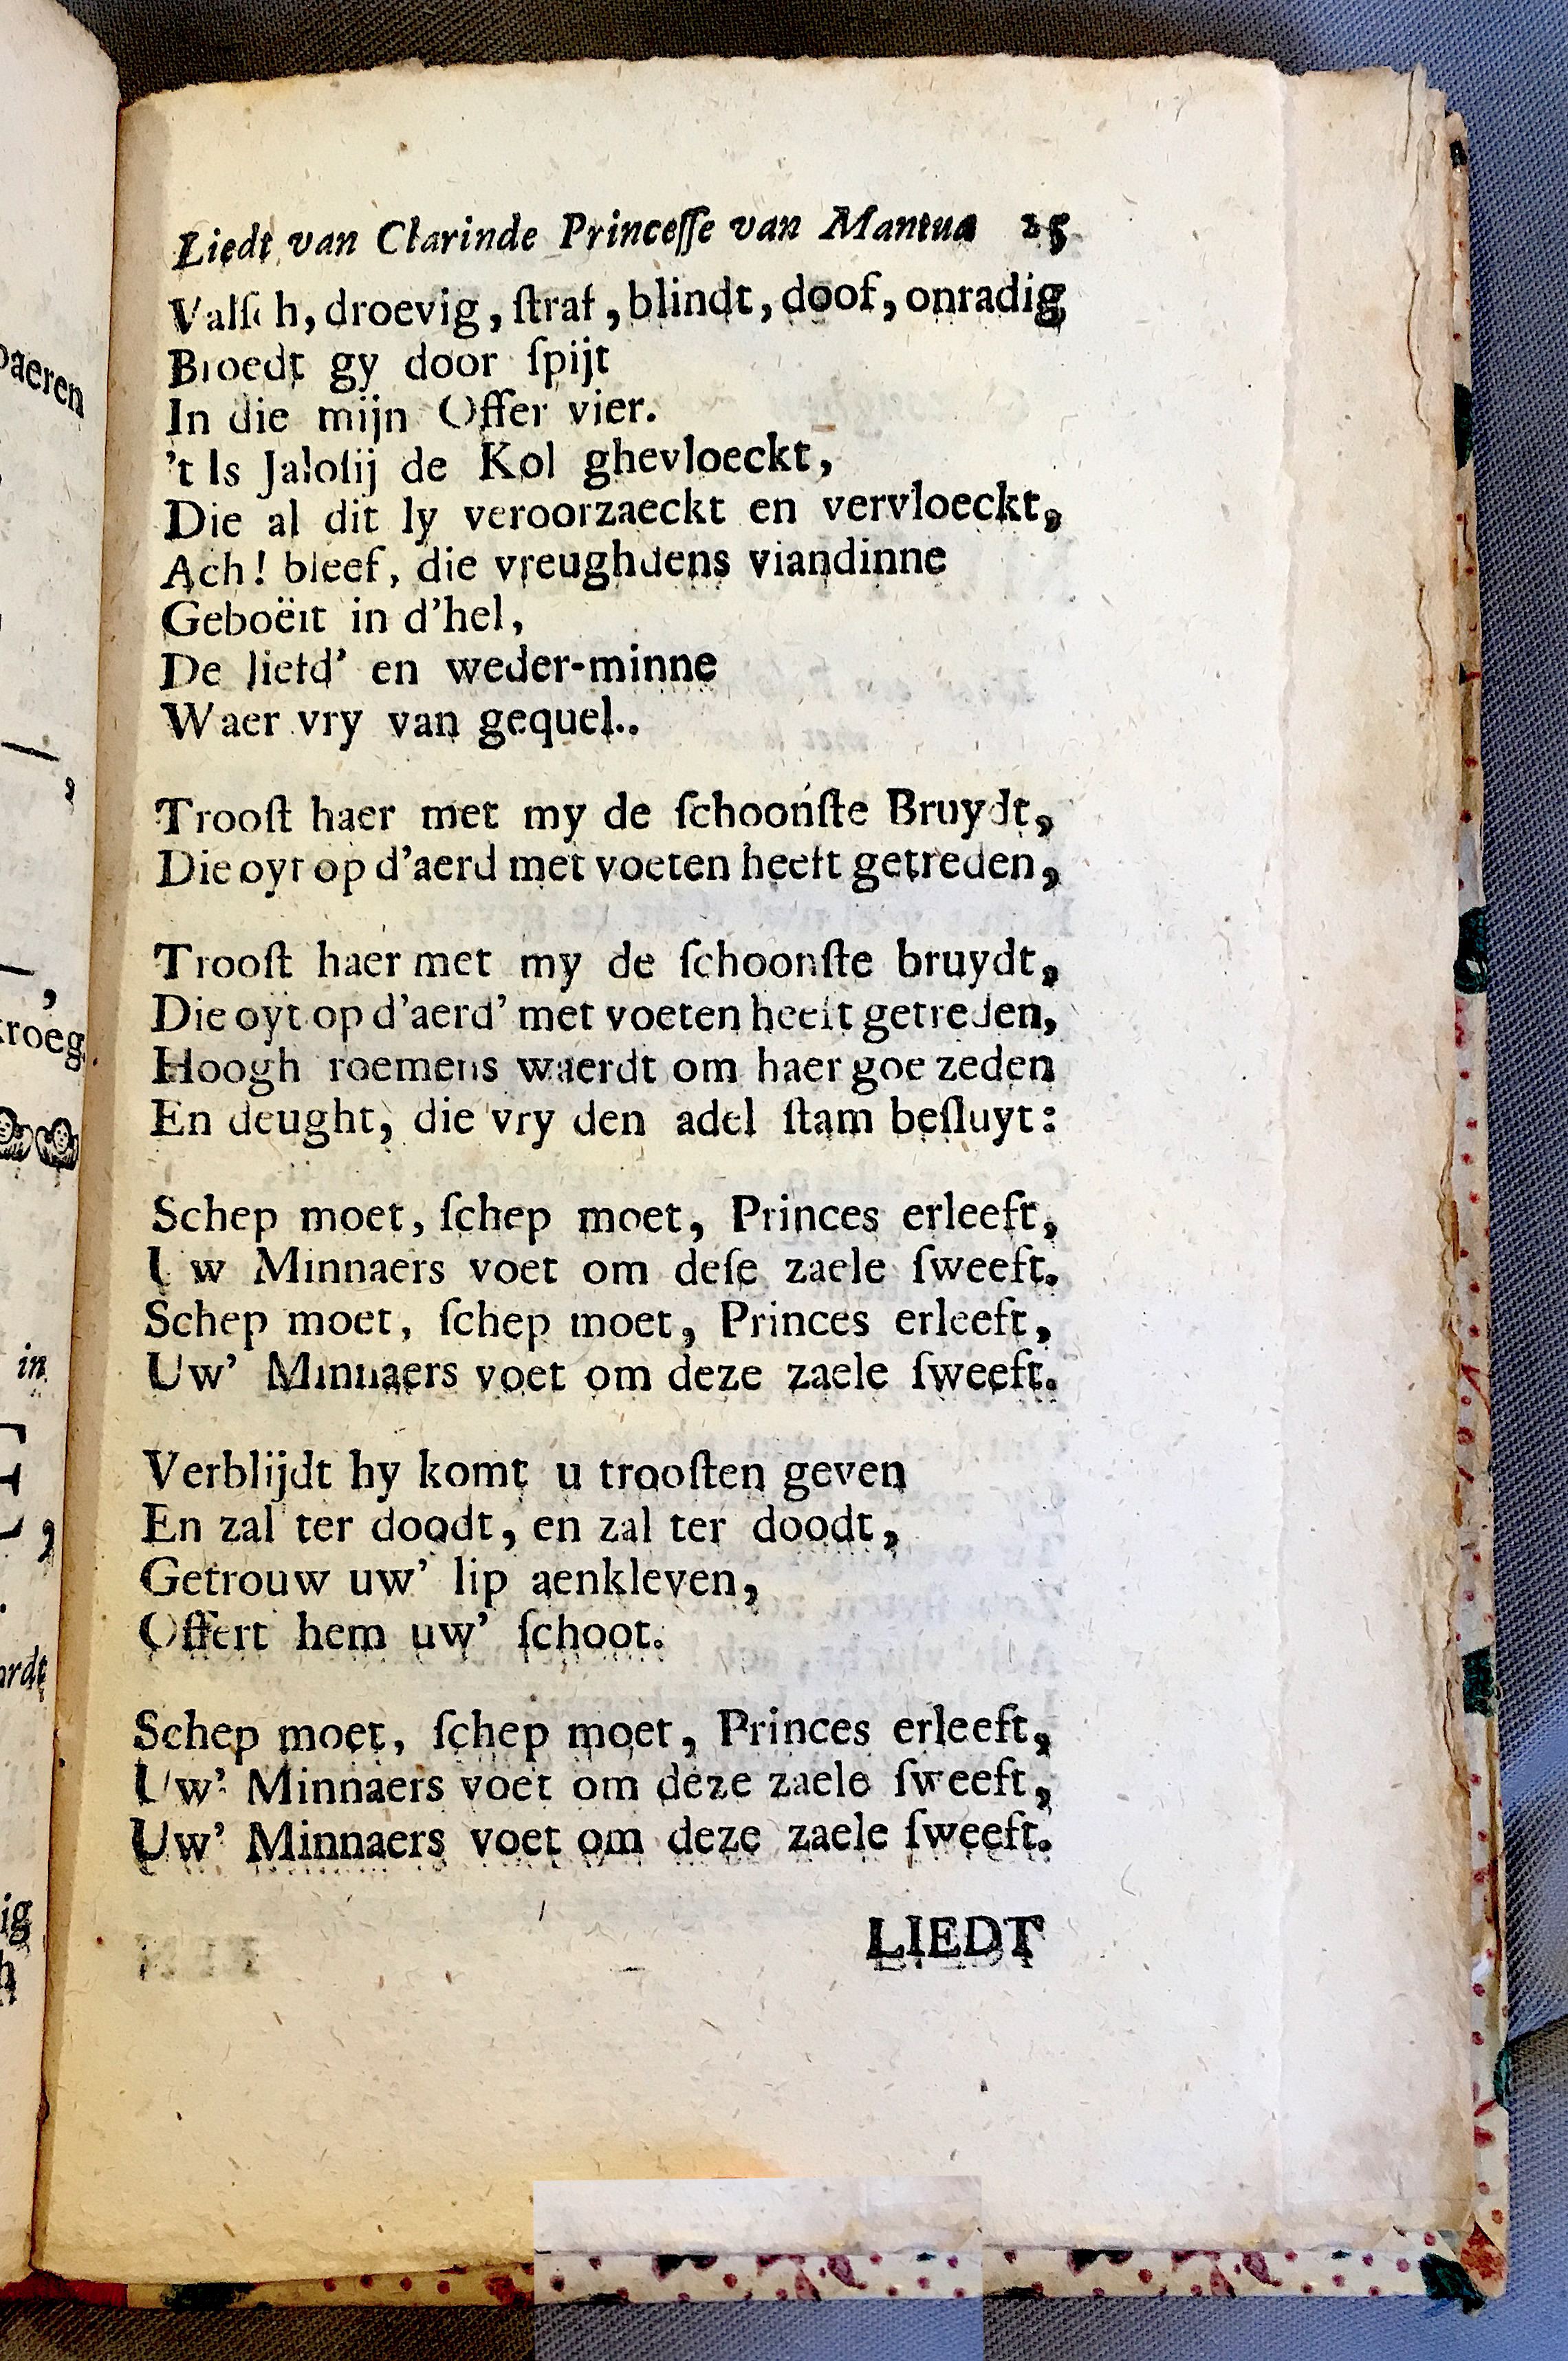 Liedt van Clarinde Princeſſe van Mantua 25
Valſch, droevig, ſtraf, blindt, doof, onradig
Broedt gy door ſpijt
In die mijn Offer vier.
't Is Jaloſij de Kol ghevloeckt,
Die al dit ly veroorzaeckt en vervloeckt,
Ach! bleef, die vreughdens viandinne
Geboëit in d'hel,
De liefd' en weder-minne
Waer vry van gequel..
Trooſt haer met my de ſchoonſte Bruydt,
Die oyt op d'aerd met voeten heeft getreden,
Trooſt haer met my de ſchoonſte bruydt,
Die oyt op d'aerd' met voeten heeft getreden,
Hoogh roemens waerdt om haer goe zeden
En deught, die vry den adel ſtam beſluyt:
Schep moet, ſchep moet, Princes erleeft,
Uw Minnaers voet om deſe zaele ſweeft.
Schep moet, ſchep moet, Princes erleeft,
Uw' Minnaers voet om deze zaele ſweeft.
Verblijdt hy komt u trooſten geven
En zal ter doodt, en zal ter doodt,
Getrouw uw' lip aenkleven,
Offert hem uw' ſchoot.
Schep moet, ſchep moet, Princes erleeft,
Uw' Minnaers voet om deze zaele ſweeft,
Uw' Minnaers voet om deze zaele ſweeft.
LIEDT